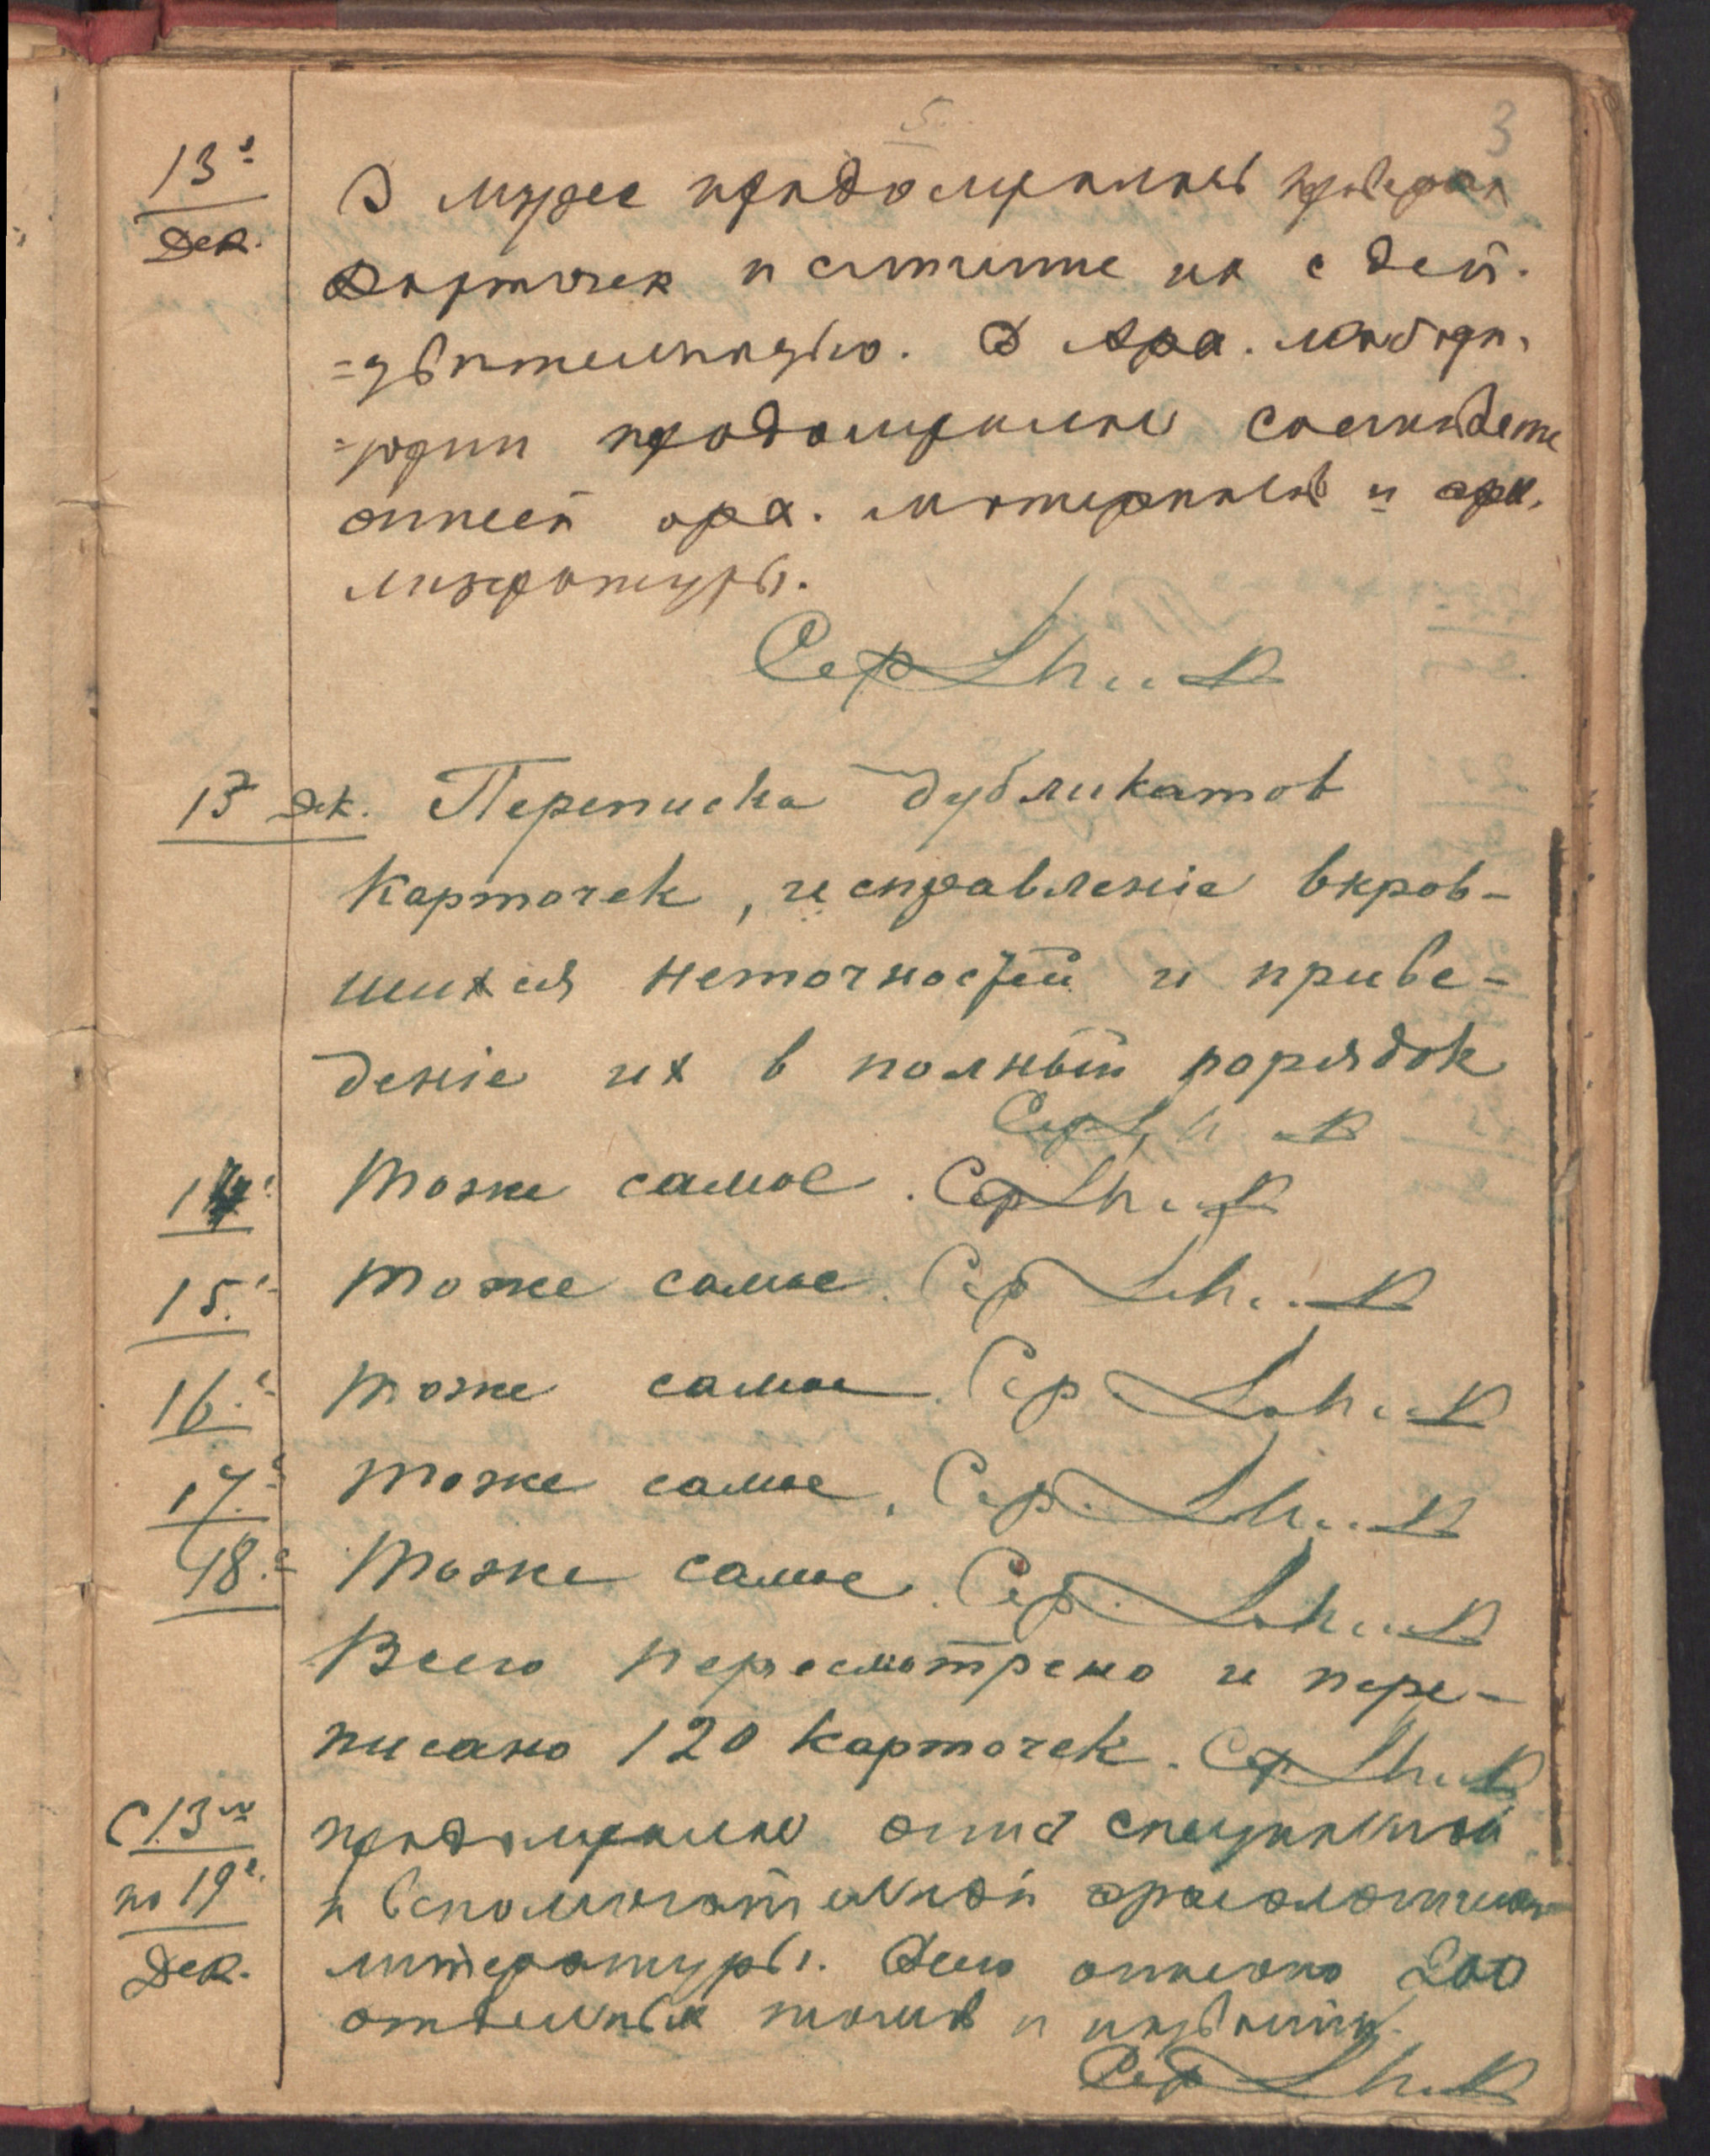 3
5
13е
Дек.
В музее продолжилась проверка
карточек и снятие их с дей-
=ствительностью. В Арх. лабора-
=тории продолжилась
описей арх. материалов и арх.
литературы.
Сер
13 Дек. Переписка дубликатов
карточек, исправленіе вкрав-
шихся неточностей и приве-
деніе их в полный порядок
Сер
14е Тоже самое. Сер
15.е Тоже самое. Сер
16.е Тоже самое. Сер
17.е Тоже самое. Сер.
18.е Тоже самое. Сер.
Всего пересмотрено и пере-
писано 120 карточек. Сер
С 13го
по 19е
Дек.
продолжилась опись специальной
и вспомогательной археологическ
литературы. Всего описано 200
отдельных томов и названий.
Сер